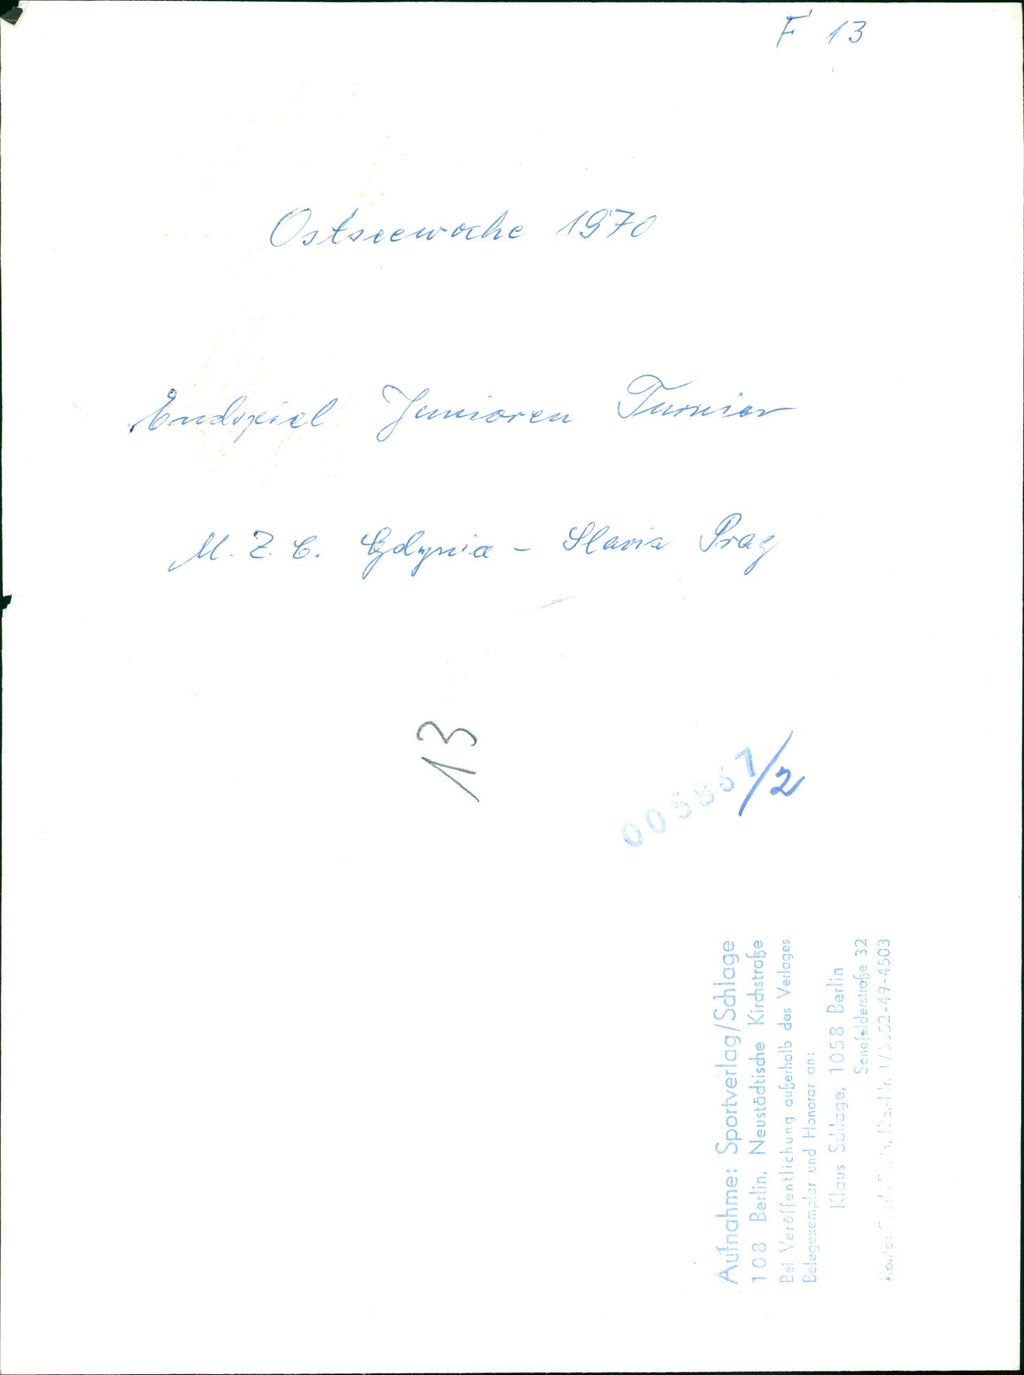 F 13
Ostseewoche 1970
Endspiel Junioren Turnier
M.Z.C. Gdynia - Slavia Prag
13
005867/2
Aufnahme: Sportverlag/Schlage
108 Berlin, Neustädtische Kirchstraße
Bei Veröffentlichung außerhalb des Verlages
Belegexemplar und Honorar an:
Klaus Schlage, 1058 Berlin
Senefelderstraße 32